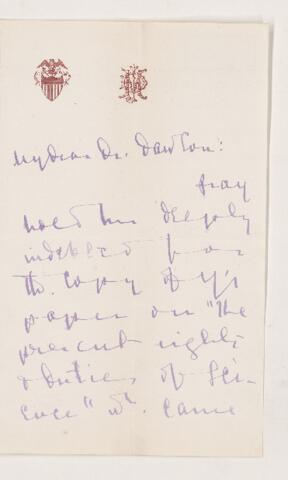 My dear Dr. Dawson:
Pray
hold me deeply
indebted for
the copy of yr
paper on "The
present rights
& duties of Sci-
ence" wh. came